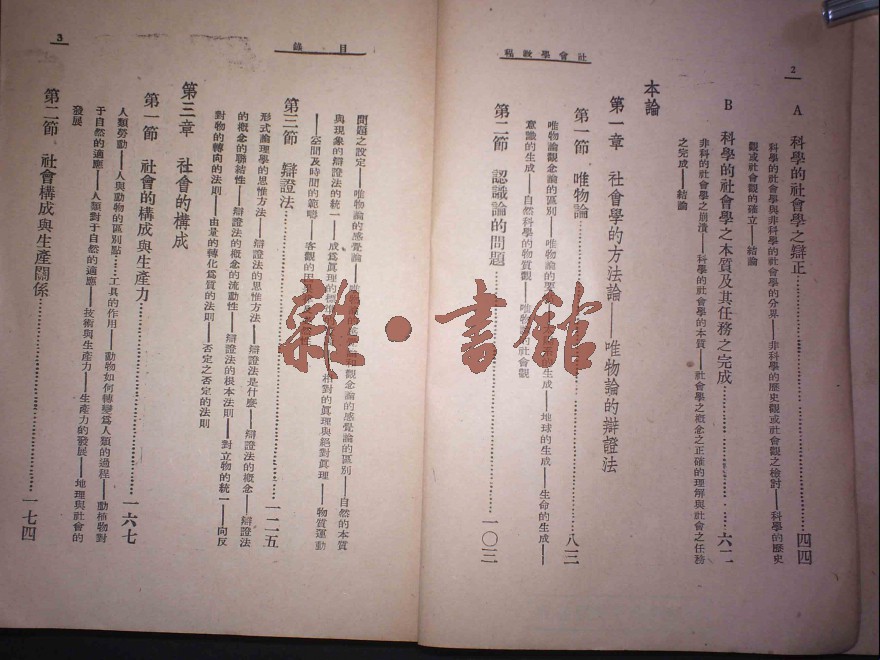 2
社會學教程
A 科學的社會學之辯正………………四四
科學的社會學與非科學的社會學的分界——非科學的歷史觀或社會觀之檢討——科學的歷史
觀或社會觀的確立——結論
B 科學的社會學之本質及其任務之完成………………六一
非科的社會學之崩潰——科學的社會學的本質——社會學之概念之正確的理解與社會之任務
之完成——結論
本論
第一章 社會學的方法論——唯物論的辯證法
第一節 唯物論………………八三
唯物論觀念論的區別——唯物論的要 生成——地球的生成——生命的生成——
意識的生成——自然科學的物質觀——唯物論的社會觀
第二節 認識論的問題………………一〇三
目錄
3
問題之設定——唯物論的感覺論——唯物 和觀念論的感覺論的區別——自然的本質
與現象的辯證法的統一——成爲眞理的標 相對的眞理與絕對眞理——物質運動
——空間及時間的範疇——客觀的因果
第三節 辯證法………………一二五
形式論理學的思惟方法——辯證法的思惟方法——辯證法是什麼——辯證法的概念——辯證法
的概念的聯結性——辯證法的概念的流動性——辯證法的根本法則——對立物的統一——向反
對物的轉向的法則——由量的轉化爲質的法則——否定之否定的法則
第三章 社會的構成
第一節 社會的構成與生產力………………一六七
人類勞動——人與動物的區別點……工具的作用——動物如何轉變爲人類的過程——動植物對
于自然的適應——人類對于自然的適應——技術與生產力——生產力的發展——地理與社會的
發展
第二節 社會構成與生產關係………………一七四
雜·書館